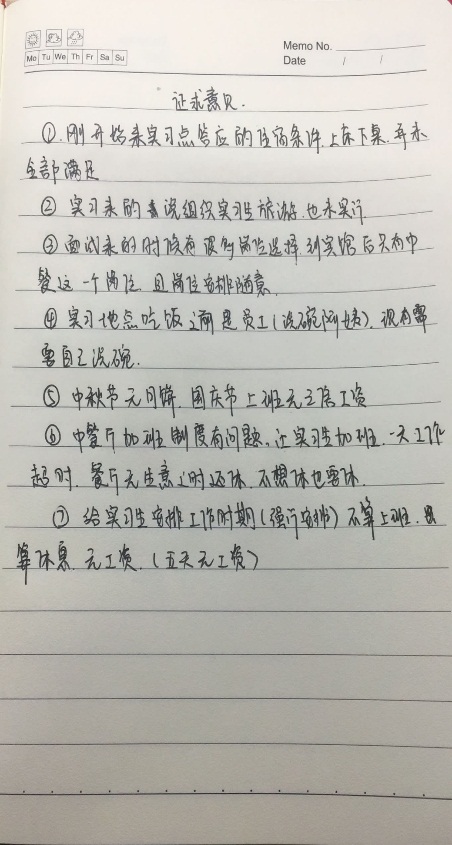 Memo No.
Mo Tu We Th Fr Sa Su
Date / /
证求意见.
①.刚开始来实习点答应的住宿条件.上床下桌.并未
全部满足
② 实习来的 说组织实习生旅游.也未实行
③ 面试来的时候有很多岗位选择.到宾馆后只有中
餐这一个岗位.且岗位安排随意.
④ 实习地点吃饭之前是员工(洗碗阿姨).现有需
要自己洗碗.
⑤ 中秋节无月饼.国庆节上班无三倍工资
⑥ 中餐厅加班制度有问题.让实习生加班.一天工作
超时.餐厅无生意之时返休.不想休也要休.
⑦ 给实习生安排工作时期(强行安排)不算上班.
算休息.无工资.(五天无工资)